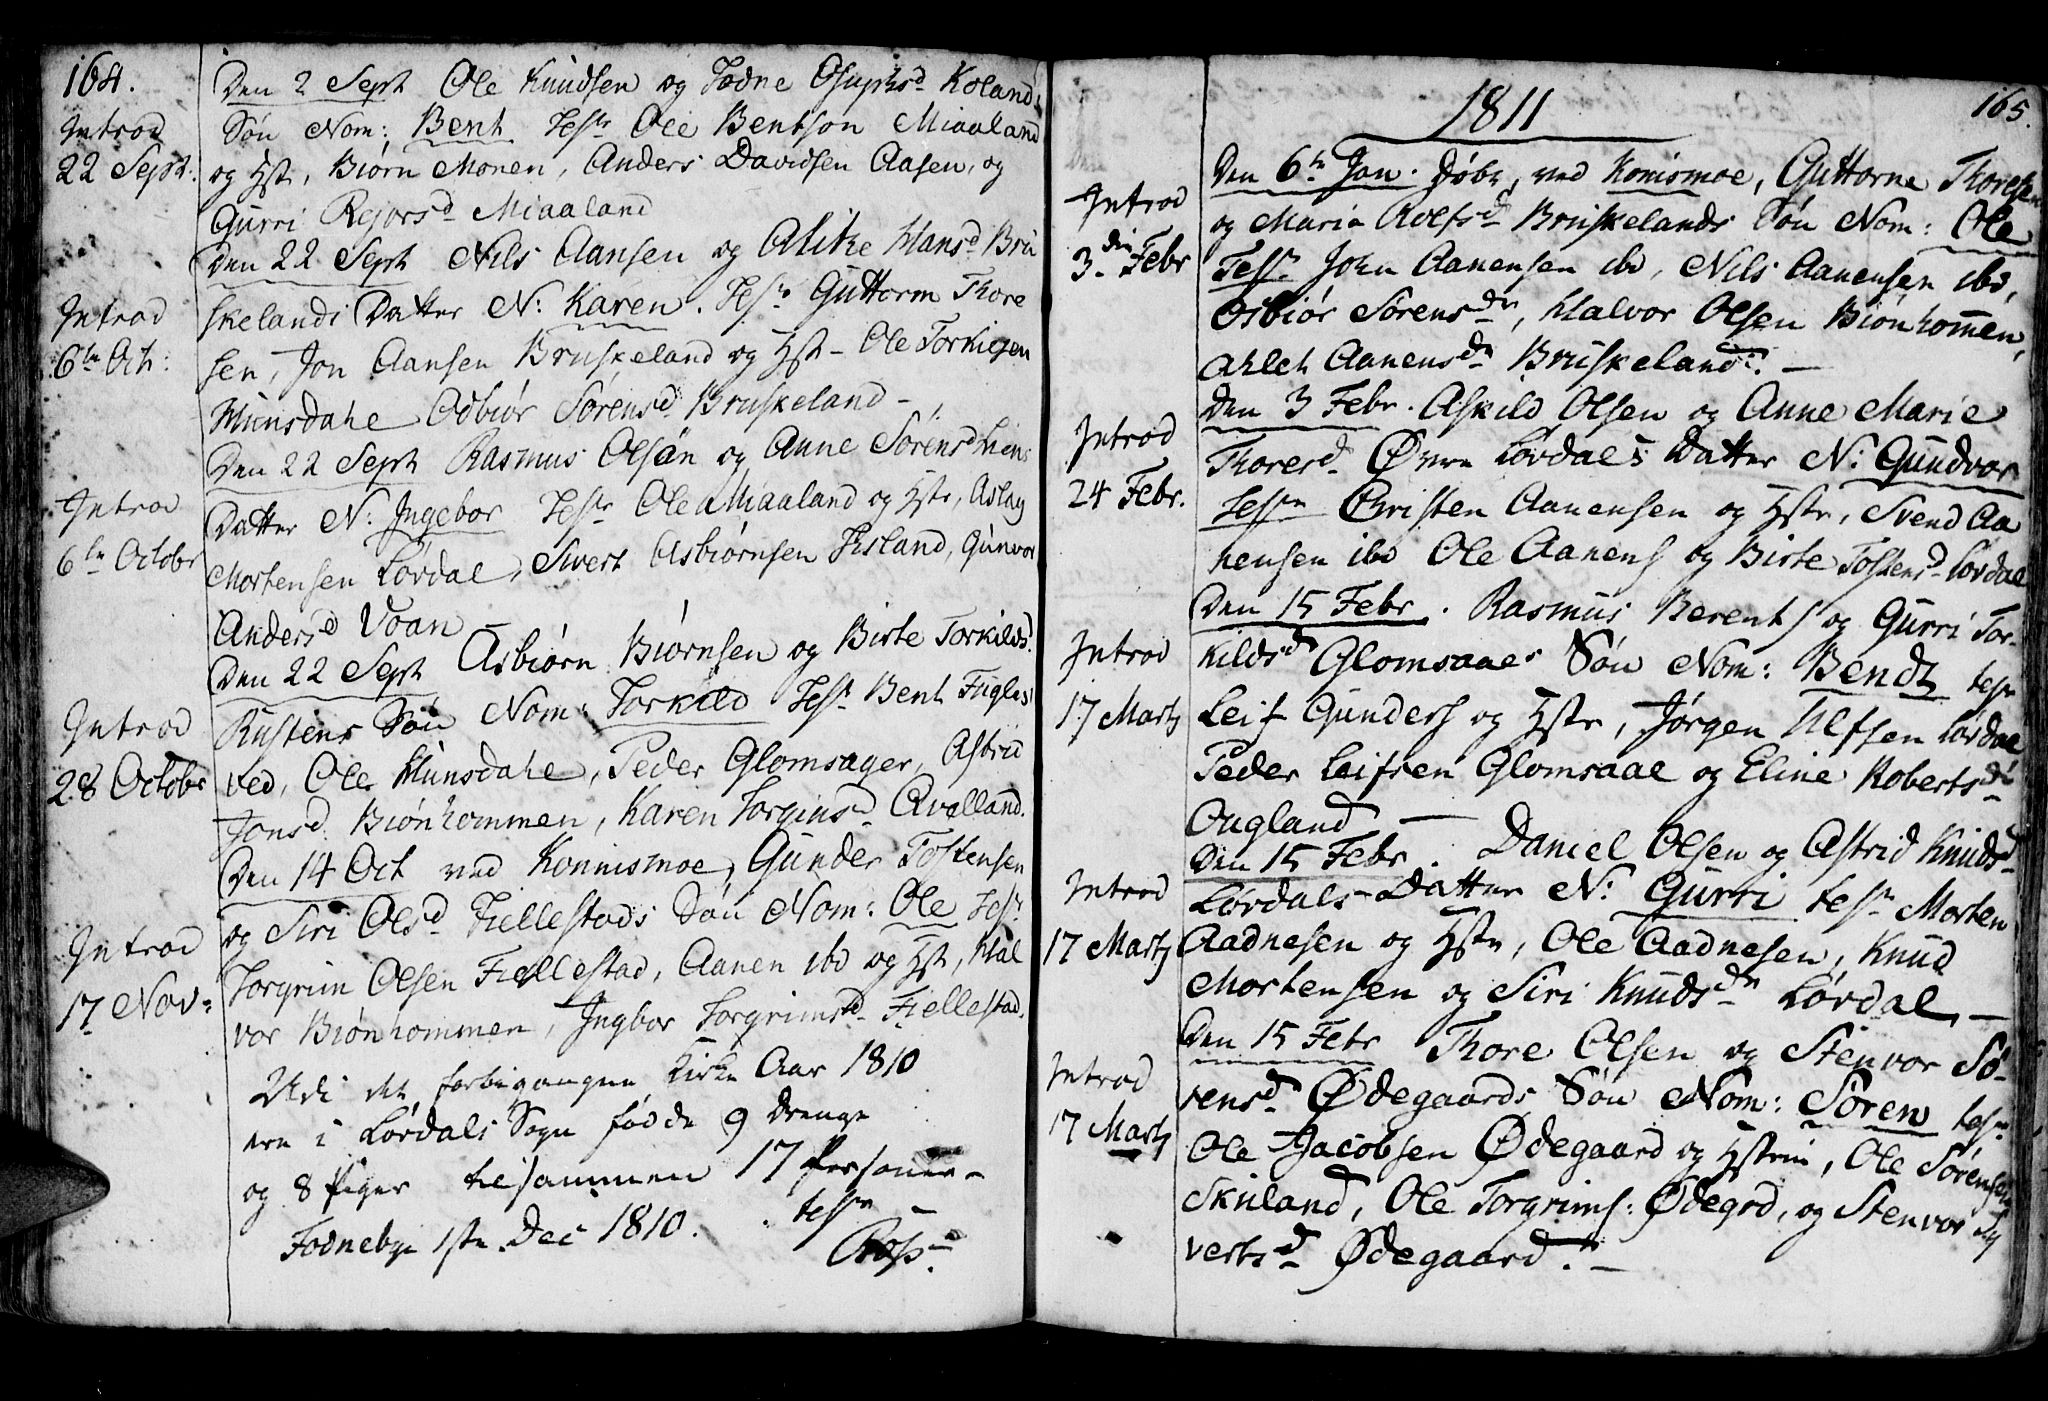 164.
Introd
22 Sept:
Den 2 Sept Ole Knudsen og Todne Osuphsd Kolands
Søn Nom: Bent Tesr Ole Bentson Miaaland
og Hstr, Biørn Monen, Anders Davidsen Aasen, og
Gurri Rejorsd Miaaland
Introd
6te Oct:
Den 22 Sept Nils Aansen og Alitze Hansd Bru
skelands Datter N: Karen. Tesr Guttorm Thore
sen, Jon Aansen Bruskeland og Hstr - Ole Torkiesen
Hunsdahe Odbiør Sørensd Bruskeland -
Introd
6te Octobr
Den 22 Sept Rasmus Olsøn og Anne Sørensd Liens
Datter N: Ingebor Tesr Ole Miaaland og Hstr, Aslag
Mortensen Lovdal, Sivert Asbiørnsen Tisland, Gunvor
Andersd Voan -
Introd
28 Octobr
Den 22 Sept Asbiørn Biørnsen og Birte Torkildsd
Rustens Søn Nom: Torkild Tesr Bent Fugles
ved, Ole Hunsdahe, Peder Glomsager, Astrid
Jonsd Biønhommen, Karen Torginsd Qvelland.
Introd
17 Nov:
Den 14 Oct ved Konnismoe, Gunder Tostensen
og Siri Olsd Fiellestads Søn Nom: Ole Tesr
Torgrim Olsen Fiellestad, Aanen ibd og Hst, Hal
vor Biønhommen, Ingbor Torgrimsd Fiellestad.
Udi det forbigangne Kirke Aar 1810
ere i Løvdals Sogn fødde 9 Drenge
og 8 Piger tilsammen 17 Personer -
Fodnebye 1ste Dec 1810. testr -
165.
1811
Introd
3die Febr
Den 6te Jan. Døbt, ved Konismoe, Guttorne Thoresen
og Maria Rolfsd Bruskelands Søn Nom: Ole
Tesr John Aanensen ibd, Nils Aanensen ibd,
Osbiør Sørensdr, Halvor Olsen Biønhommen,
Ahlet Aanensdr Bruskeland. -
Introd
24 Febr.
Den 3 Febr. Askild Olsen og Anne Marie
Thoresd Øvre Løvdals Datter N: Gundvor
Tesr Christen Aanensen og Hstr, Svend Aa
nensen ibd Ole Aanens og Birte Tostensd Løvdal
Introd
17 Martz
Den 15 Febr. Rasmus Berents og Gurri Tor-
kildsdr Glomsaaes Søn Nom: Bendt tesr
Leif Gunders og Hstr, Jørgen Ulfsen Løvdal
Peder Leifsen Glomsaae og Eline Robertsdr
Ougland -
Introd
17 Martz
Den 15 Febr. Daniel Olsen og Astrid Knudsd
Løvdals - Datter N: Gurri tesr Morten
Aadnesen og Hstr, Ole Aadnesen, Knud
Mortensen og Siri Knudsdr Løvdal, -
Introd
17 Martz
Den 15 Febr Thore Olsen og Stenvor Sø-
rensd Ødegaards Søn Nom: Søren tesr
Ole Jacobsen Ødegaard og Hstrui, Ole Sørensen
Skuland, Ole Torgrims: Ødegrd, og Stenvor Sy
vertsd Ødegaard. -